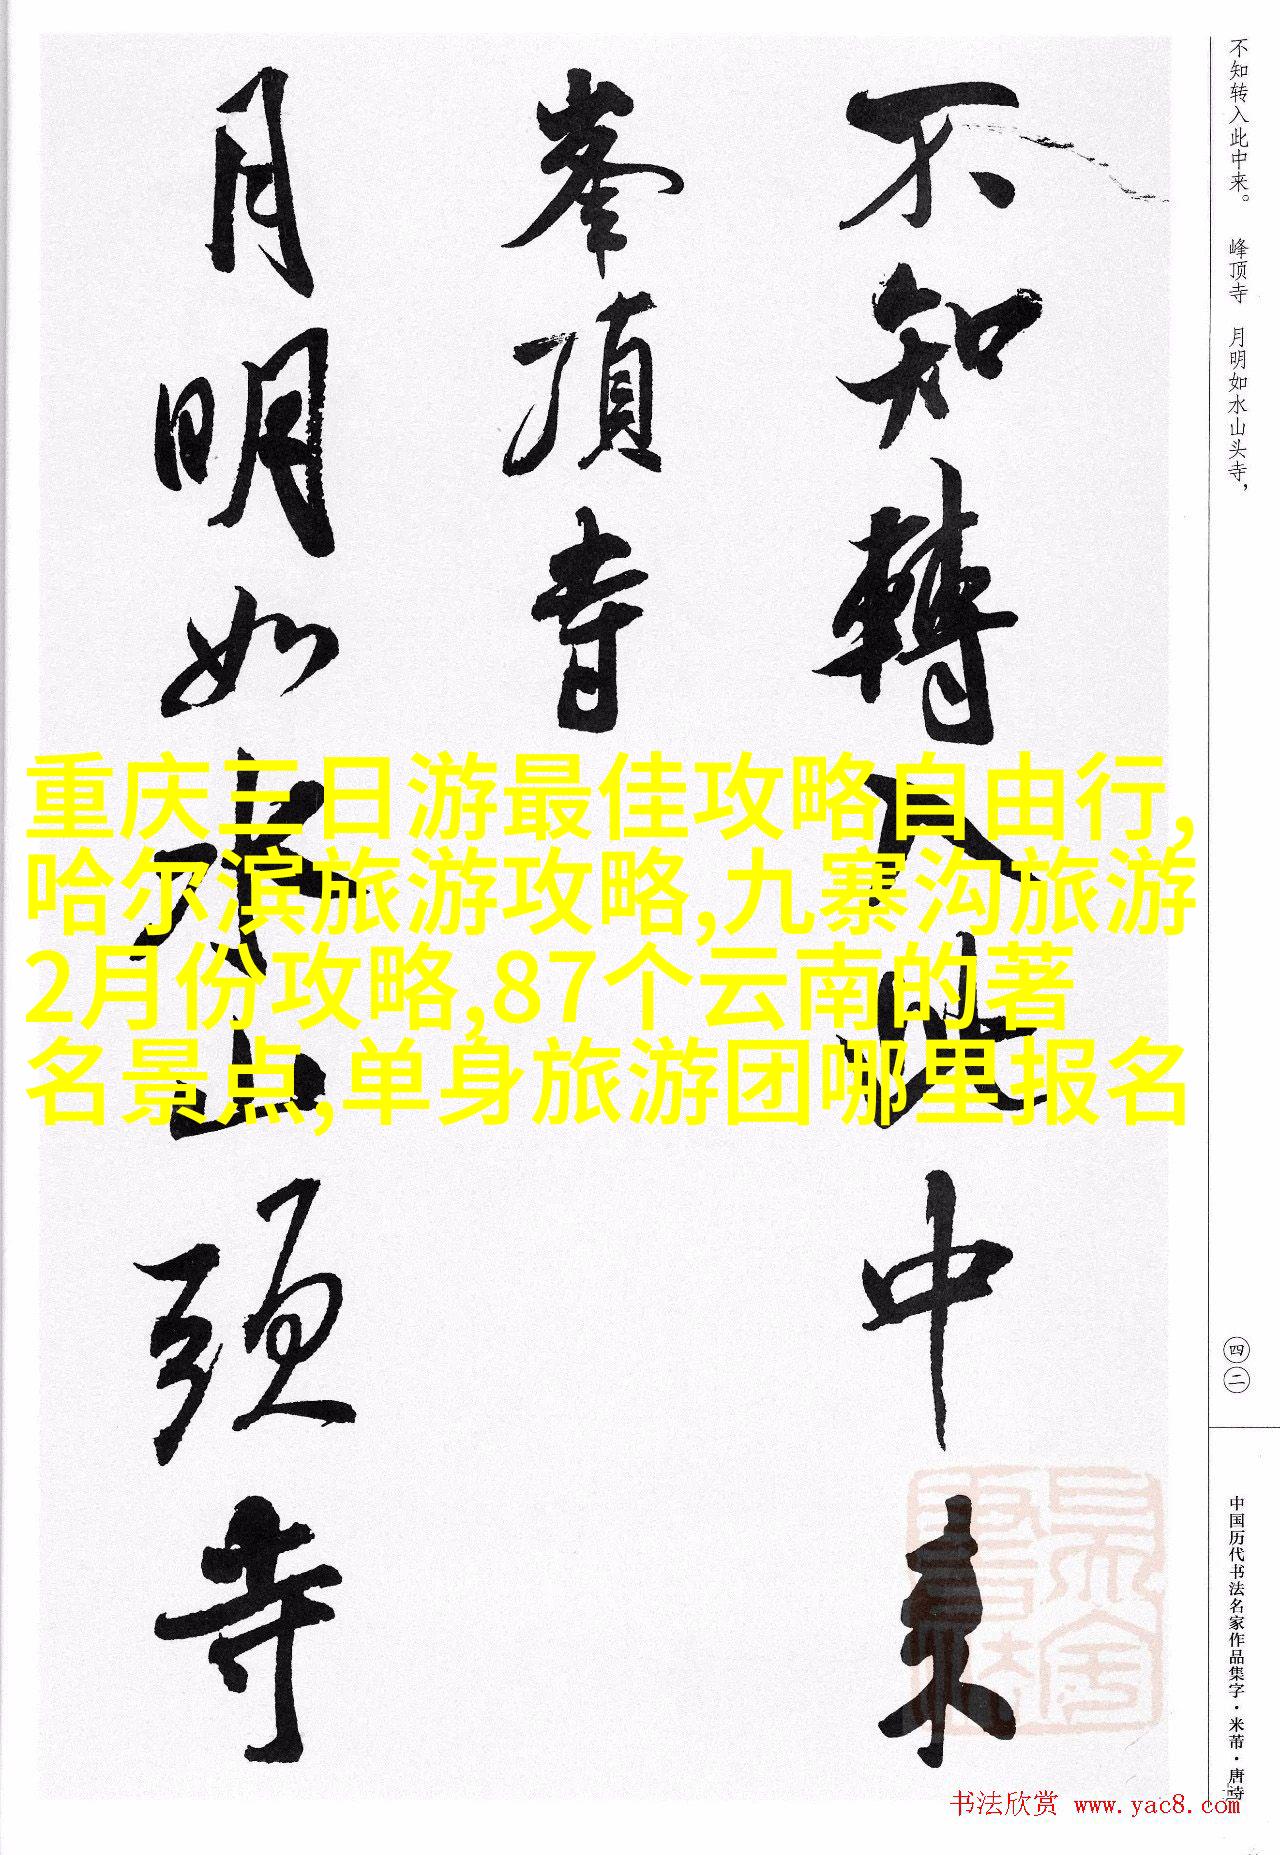 不知轉入此中来
峯頂寺
月明如水山頭寺
不知转入此中来。 峰顶寺 月明如水山头寺，
重庆三日游最佳攻略自由行,
哈尔滨旅游攻略,九寨沟旅游
2月份攻略,87个云南的著
名景点,单身旅游团哪里报名
四二
中国历代书法名家作品集字·米芾·唐诗
书法欣赏 www.yac8.com